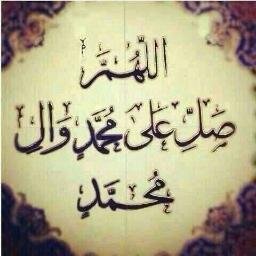 اللّهُمَّ
صَلِّ عَلى مُحمَّدٍ وَالِ
مُحمَّدٍ